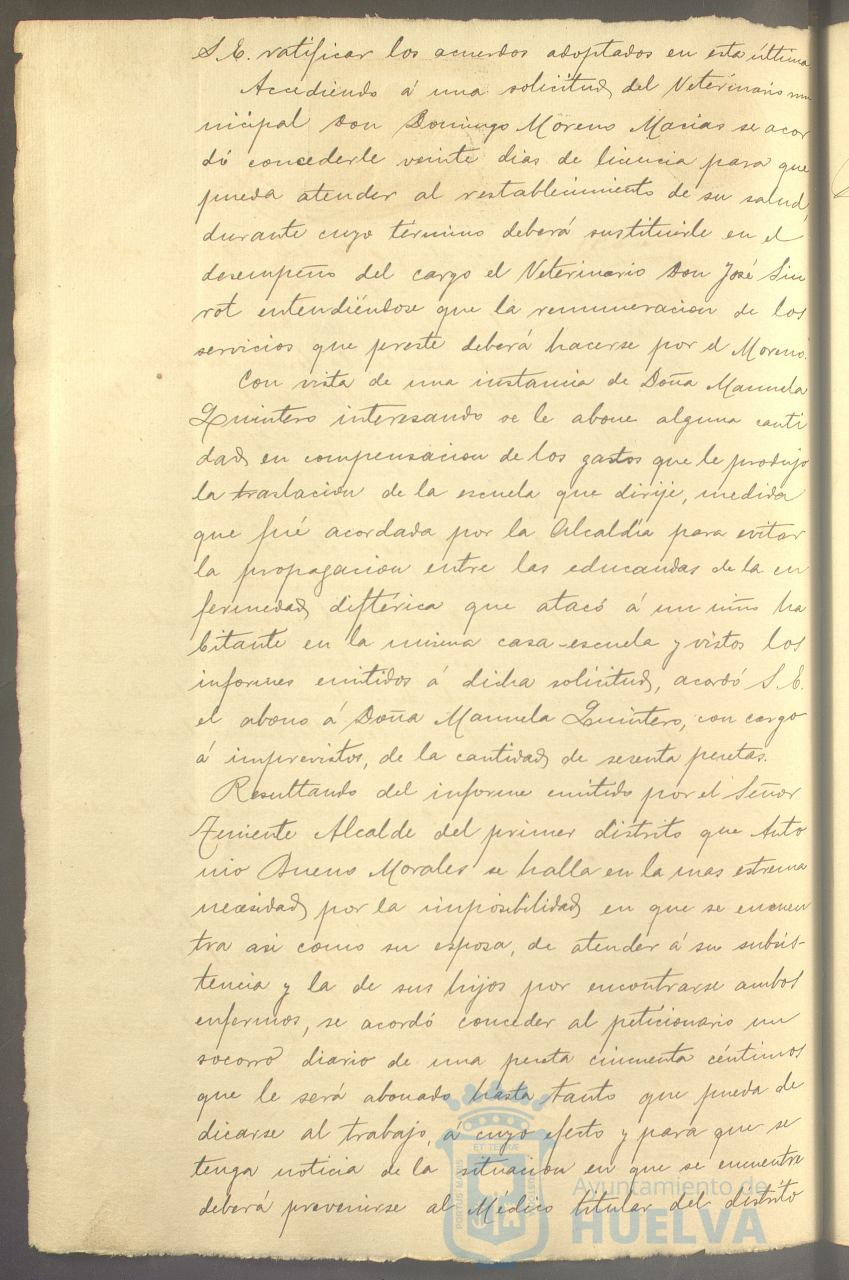 S. E. ratificar los acuerdos adoptados en esta última
Accediendo á una solicitud del Veterinario mu
nicipal Don Domingo Moreno Macias se acor
dó concederle veinte dias de licencia para que
pueda atender al restablecimiento de su salud,
durante cuyo término deberá sustituirle en el
desempeño del cargo el Veterinario Don José Sin
rot entendiéndose que la remuneracion de los
servicios que preste deberá hacerse por el Moreno.
Con vista de una instancia de Doña Manuela
Quintero interesando se le abone alguna canti
dad en compensacion de los gastos que le produjo
la traslacion de la escuela que dirije, medida
que fué acordada por la Alcaldía para evitar
la propagacion entre las educandas de la en
fermedad diftérica que atacó á un niño ha
bitante en la misma casa-escuela y vistos los
informes emitidos á dicha solicitud, acordó S. E.
el abono á Doña Manuela Quintero, con cargo
á imprevistos, de la cantidad de sesenta pesetas.
Resultando del informe emitido por el Señor
Teniente Alcalde del primer distrito que Anto
nio Bueno Morales se halla en la mas estrema
necesidad por la imposibilidad en que se encuen
tra asi como su esposa, de atender á su subsis-
tencia y la de sus hijos por encontrarse ambos
enfermos, se acordó conceder al peticionario un
socorro diario de una peseta cincuenta céntimos
que le será abonado hasta tanto que pueda de
dicarse al trabajo, á cuyo efecto y para que se
tenga noticia de la situacion en que se encuentre
deberá prevenirse al Médico titular del distrito
Ayuntamiento de
HUELVA